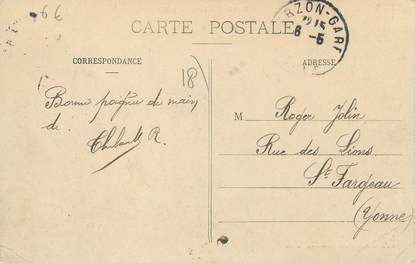 99
CARTE POSTALE
RZON-GARE
22 15
6-5
CORRESPONDANCE
ADRESSE
18
Bonne poignée de main
de Thibault R.
M Roger Jolin
Rue des Lions
St Fargeau
(Yonne)